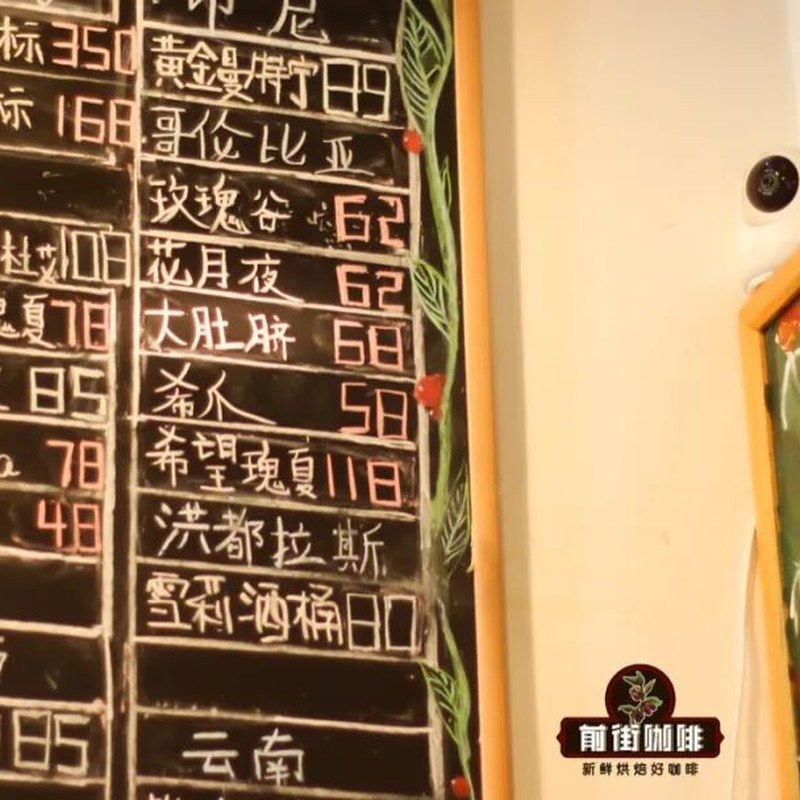 标 350
标 168
杜艾 108
瑰夏 78
85
a 78
48
85
印尼
黄金曼特宁 89
哥伦比亚
玫瑰谷 62
花月夜 62
大肚脐 68
希爪 58
希望瑰夏 118
洪都拉斯
雪莉酒桶 80
云南
前街咖啡
新鲜烘焙好咖啡